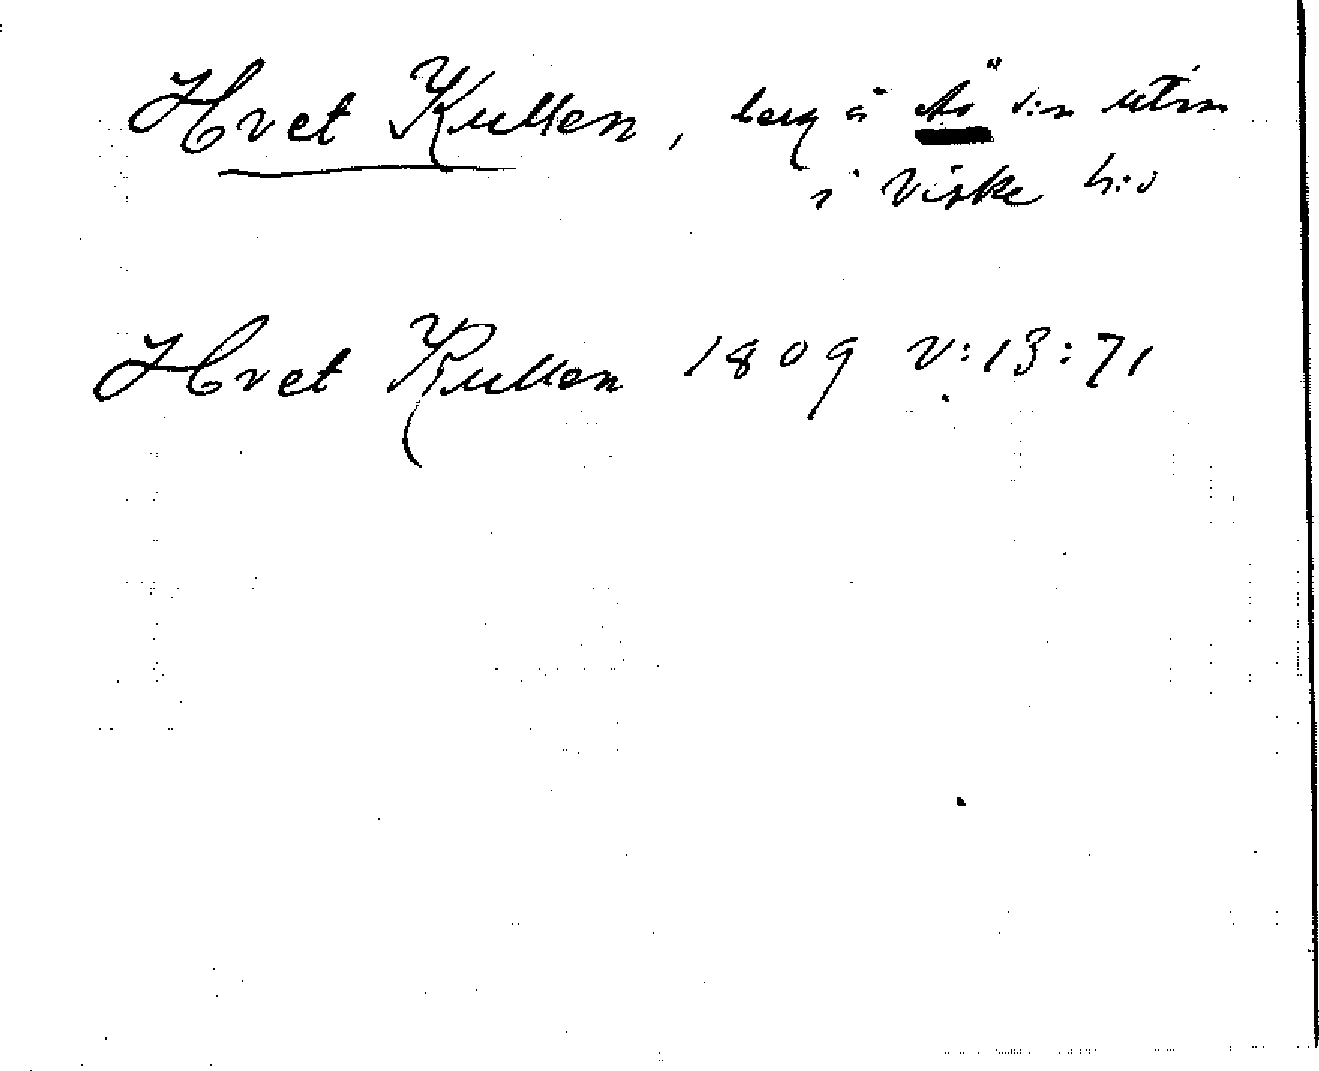 Hvet Kullen, berg å Ås s:n utm
i Viske h:d
Hvet Kullen 1809 V:13:71